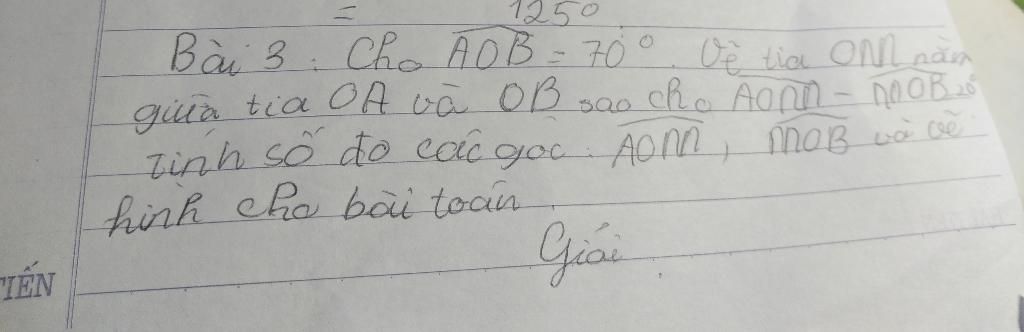 = 125°
Bài 3: Cho AOB = 70°. Vẽ tia OM nằm
giữa tia OA và OB sao cho AOM - MOB = 20°
Tính số đo các góc: AOM, MOB và vẽ
hình cho bài toán.
Giải
TIẾN